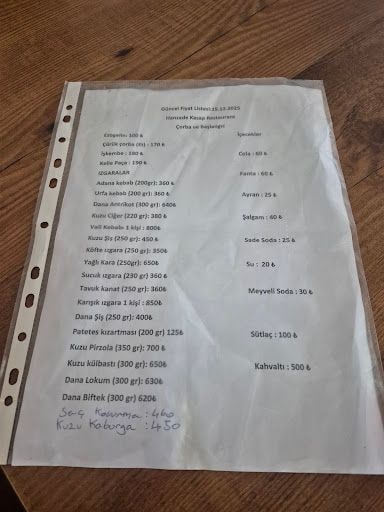 Güncel Fiyat Listesi 15.12.2025
Hanzade Kasap Restaurant
Çorba ve başlangıç
Ezogelin: 100 ₺
Çürük çorba (et) - 170 ₺
İşkembe : 180 ₺
Kelle Paça : 190 ₺
IZGARALAR
Adana kebab (200gr): 360 ₺
Urfa kebab (200 gr): 360 ₺
Dana Antrikot (300 gr): 640₺
Kuzu Ciğer (220 gr): 380 ₺
Vali Kebabı 1 kişi : 800₺
Kuzu Şiş (250 gr) 450 ₺
Köfte ızgara (250 gr): 350₺
Yağlı Kara (250gr) 650₺
Sucuk ızgara (230 gr) 360 ₺
Tavuk kanat (250 gr): 360₺
Karışık ızgara 1 kişi : 850₺
Dana Şiş (250 gr) 400₺
Patetes kızartması (200 gr) 125₺
Kuzu Pirzola (350 gr): 700 ₺
Kuzu külbastı (300 gr): 650₺
Dana Lokum (300 gr): 630₺
Dana Biftek (300 gr) 620₺
Saç Kavurma : 460
Kuzu Kaburga : 450
İçecekler
Cola : 60 ₺
Fanta : 60 ₺
Ayran : 25 ₺
Şalgam : 40 ₺
Sade Soda : 25 ₺
Su : 20 ₺
Meyveli Soda : 30 ₺
Sütlaç : 100 ₺
Kahvaltı : 500 ₺